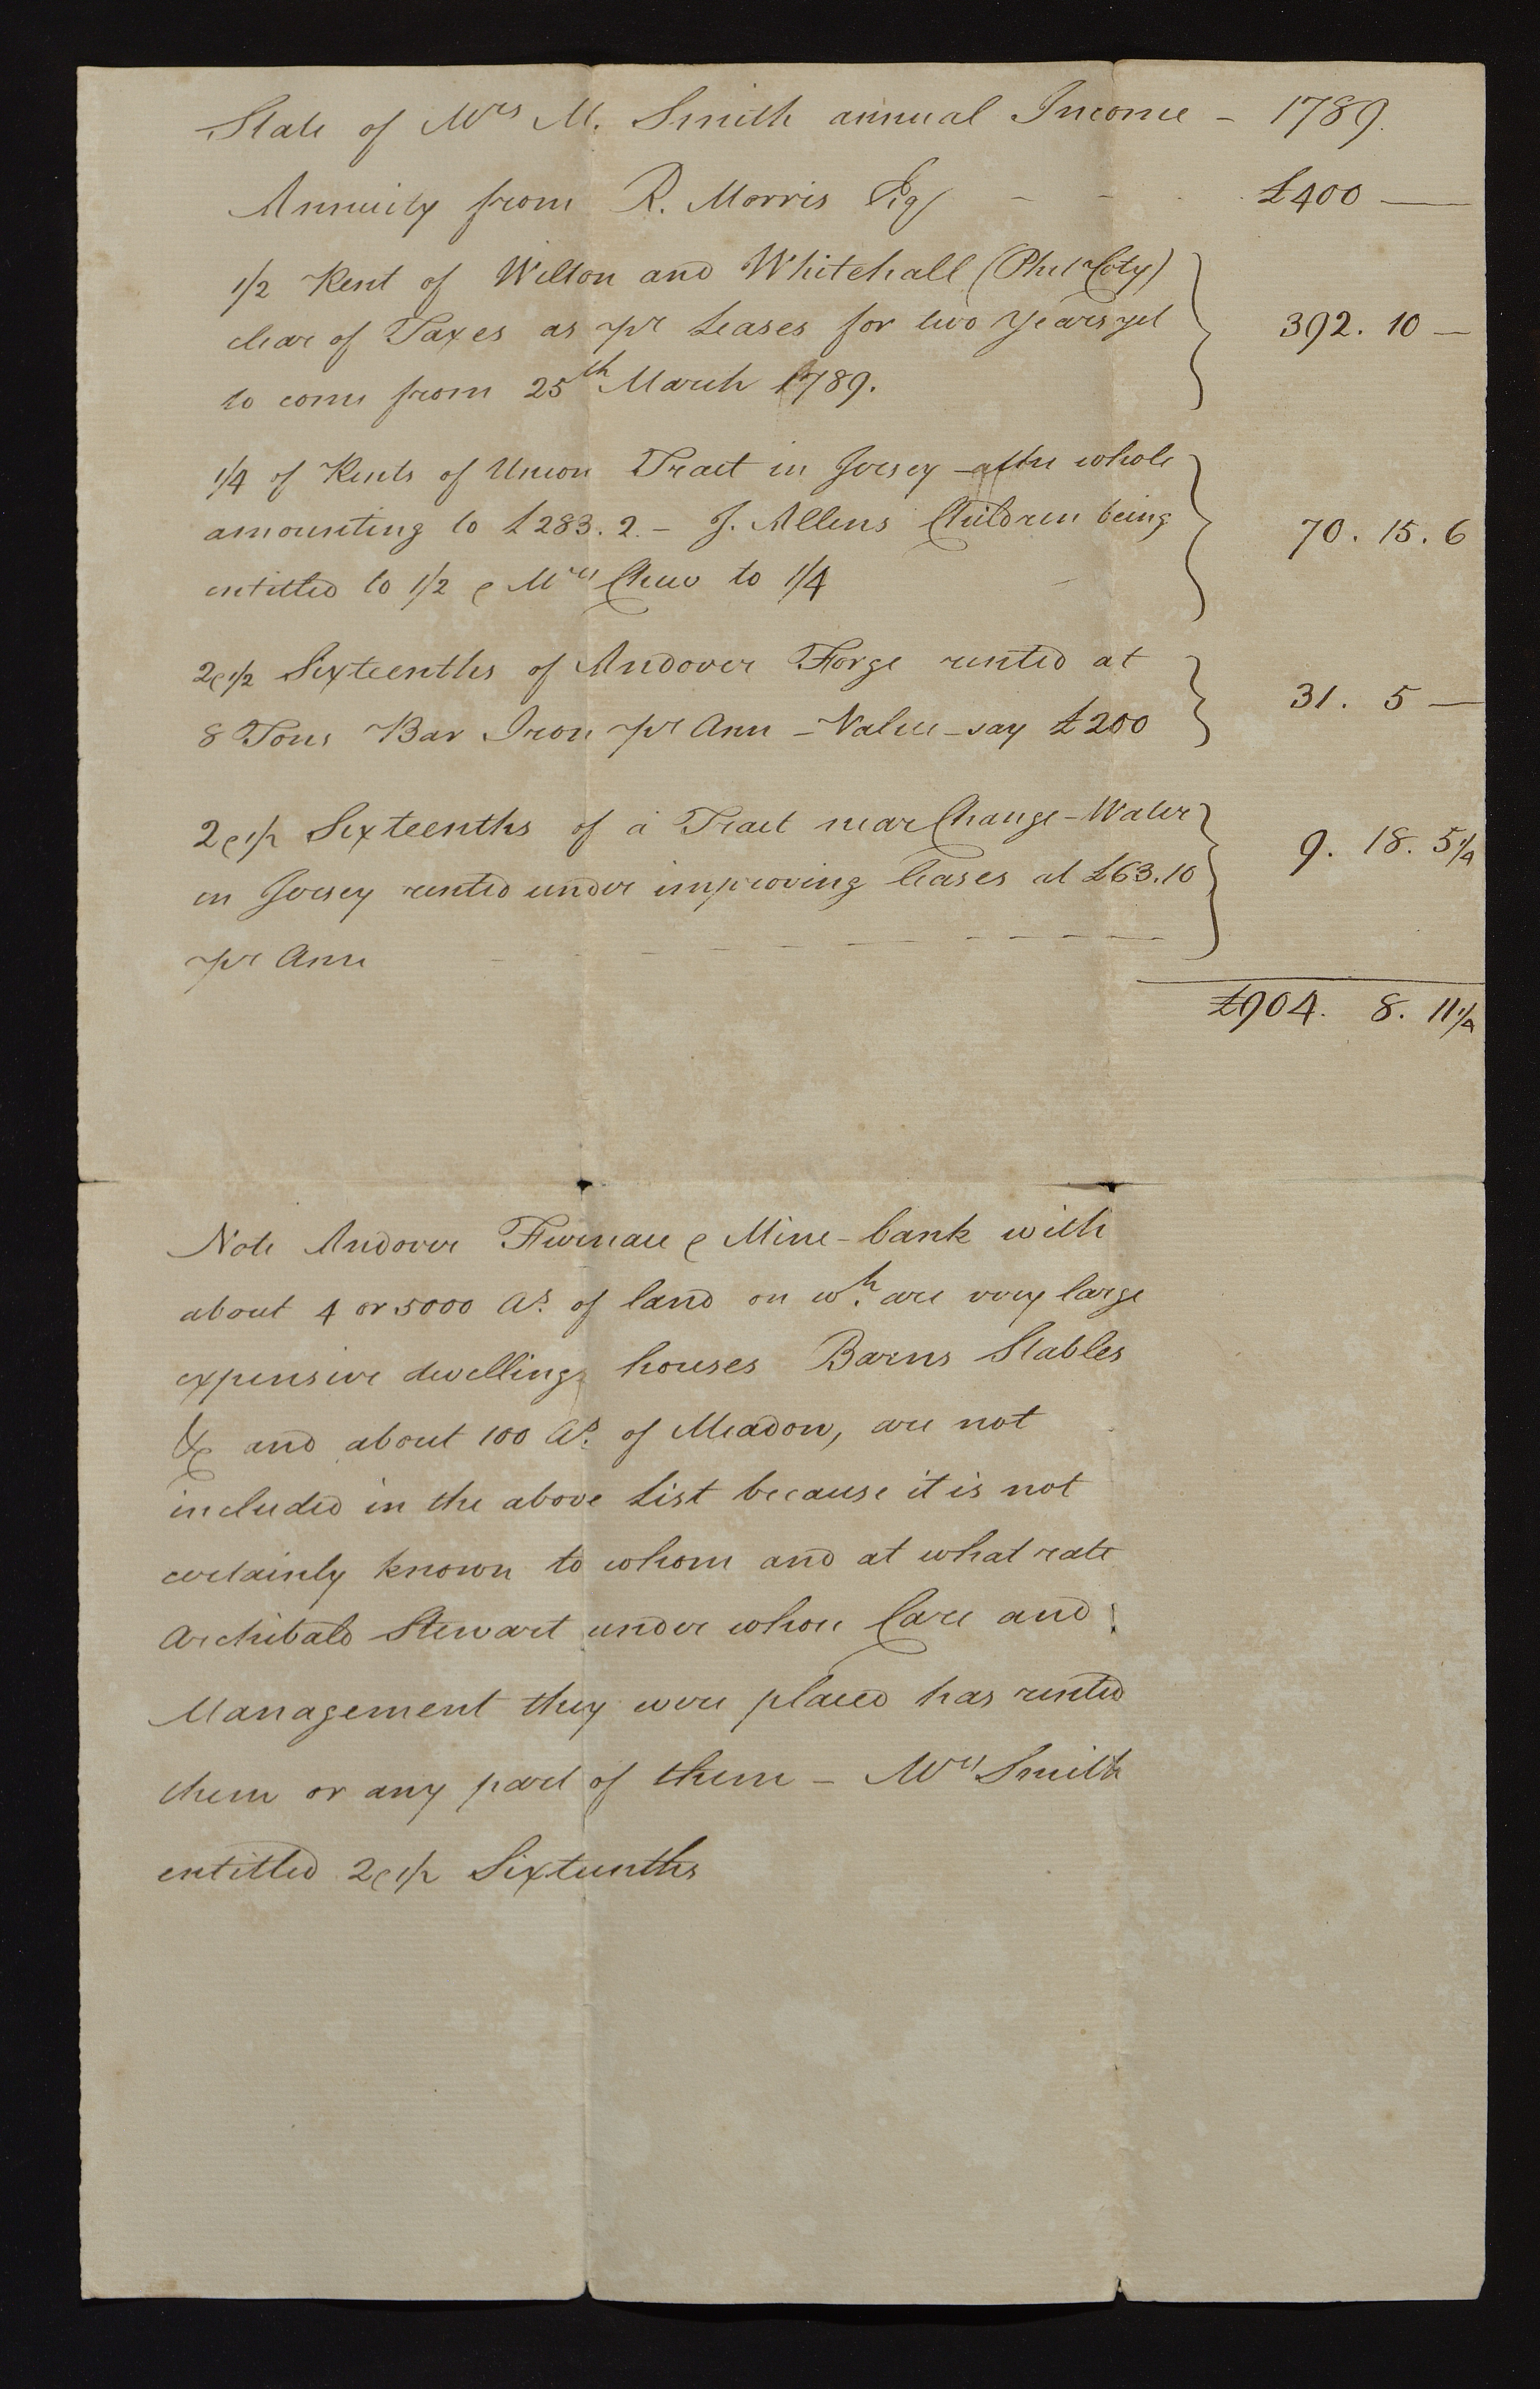 State of Mrs M. Smith annual Income - 1789.
Annuity from R. Morris Esq - - £400 —
1/2 Rent of Wilton and Whitehall (Phila Coty)
clear of Taxes as pr Leases for two Years yet 392. 10 —
to come from 25th March 1789.
1/4 of Rents of Union Tract in Jersey - after whole
amounting to £283. 2. - J. Allens Children being 70. 15. 6
entitled to 1/2 & Mrs Chew to 1/4
2 & 1/2 Sixteenths of Andover Forge rented at
8 Tons Bar Iron pr Ann - Value - say £200 31. 5 —
2 & 1/2 Sixteenths of a Tract near Change-Water
in Jersey rented under improving leases at £63.10 9. 18. 5 1/4
pr Ann - - - - - - - -
£904. 8. 11 1/4
Note Andover Furnace & Mine-bank with
about 4 or 5000 As. of land on wh. are very large
expensive dwelling houses Barns Stables
&c and about 100 As. of Meadow, are not
included in the above List because it is not
certainly known to whom and at what rate
Archibald Stewart under whose Care and
Management they were placed has rented
them or any part of them - Mrs Smith
entitled 2 & 1/2 Sixteenths